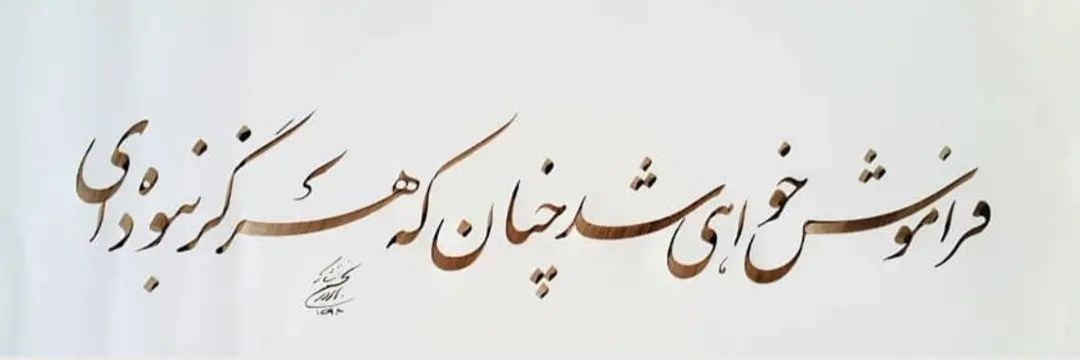 فراموش خواهی شد چنان که هرگز نبوده‌ای